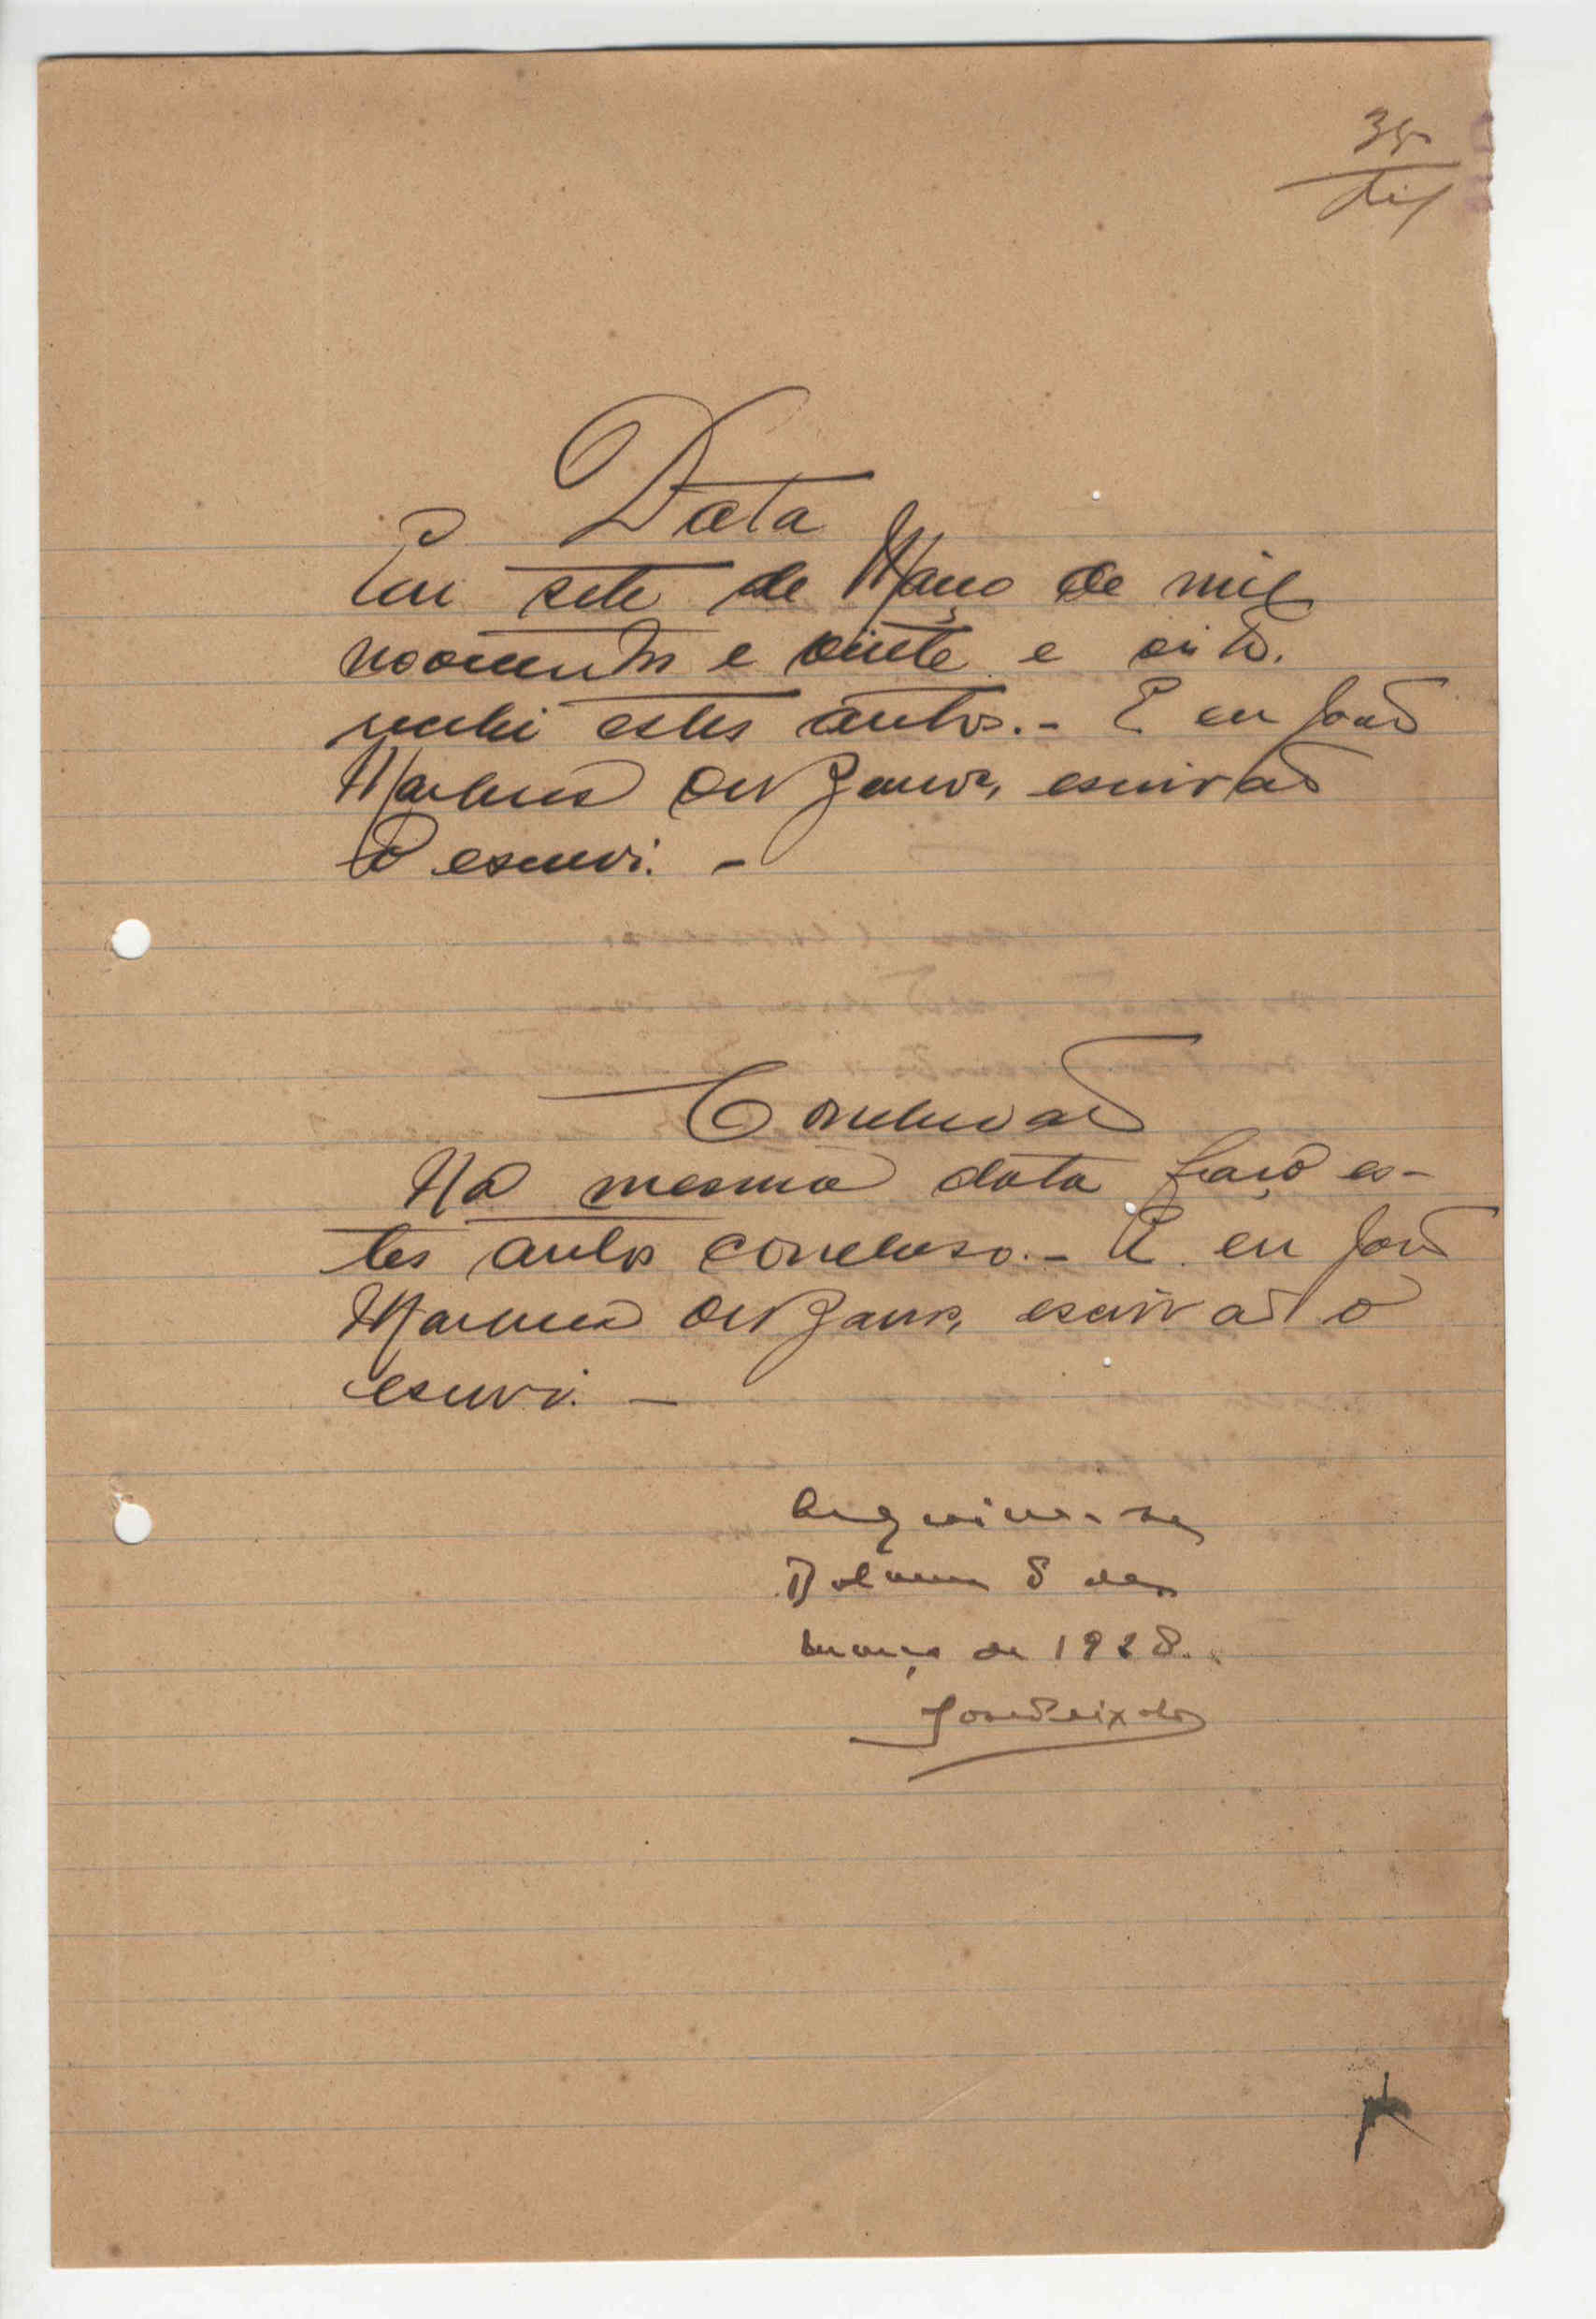 35
Data
Em sete de Março de mil
novecentos e vinte e oito.
recebi estes autos.- E eu João
Martins dos, escrivão
o escrevi. -
Conclusão
Na mesma data faço es-
tes autos concluso.- E eu João
Martins dos, escrivão o
escrevi. -
Archive-se
8 de
março de 1928.
José Peixoto